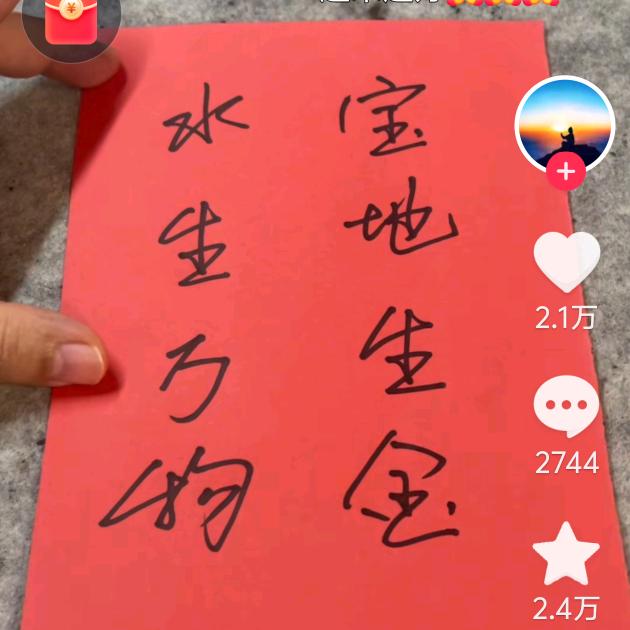 宝地生金
水生万物
2.1万
2744
2.4万